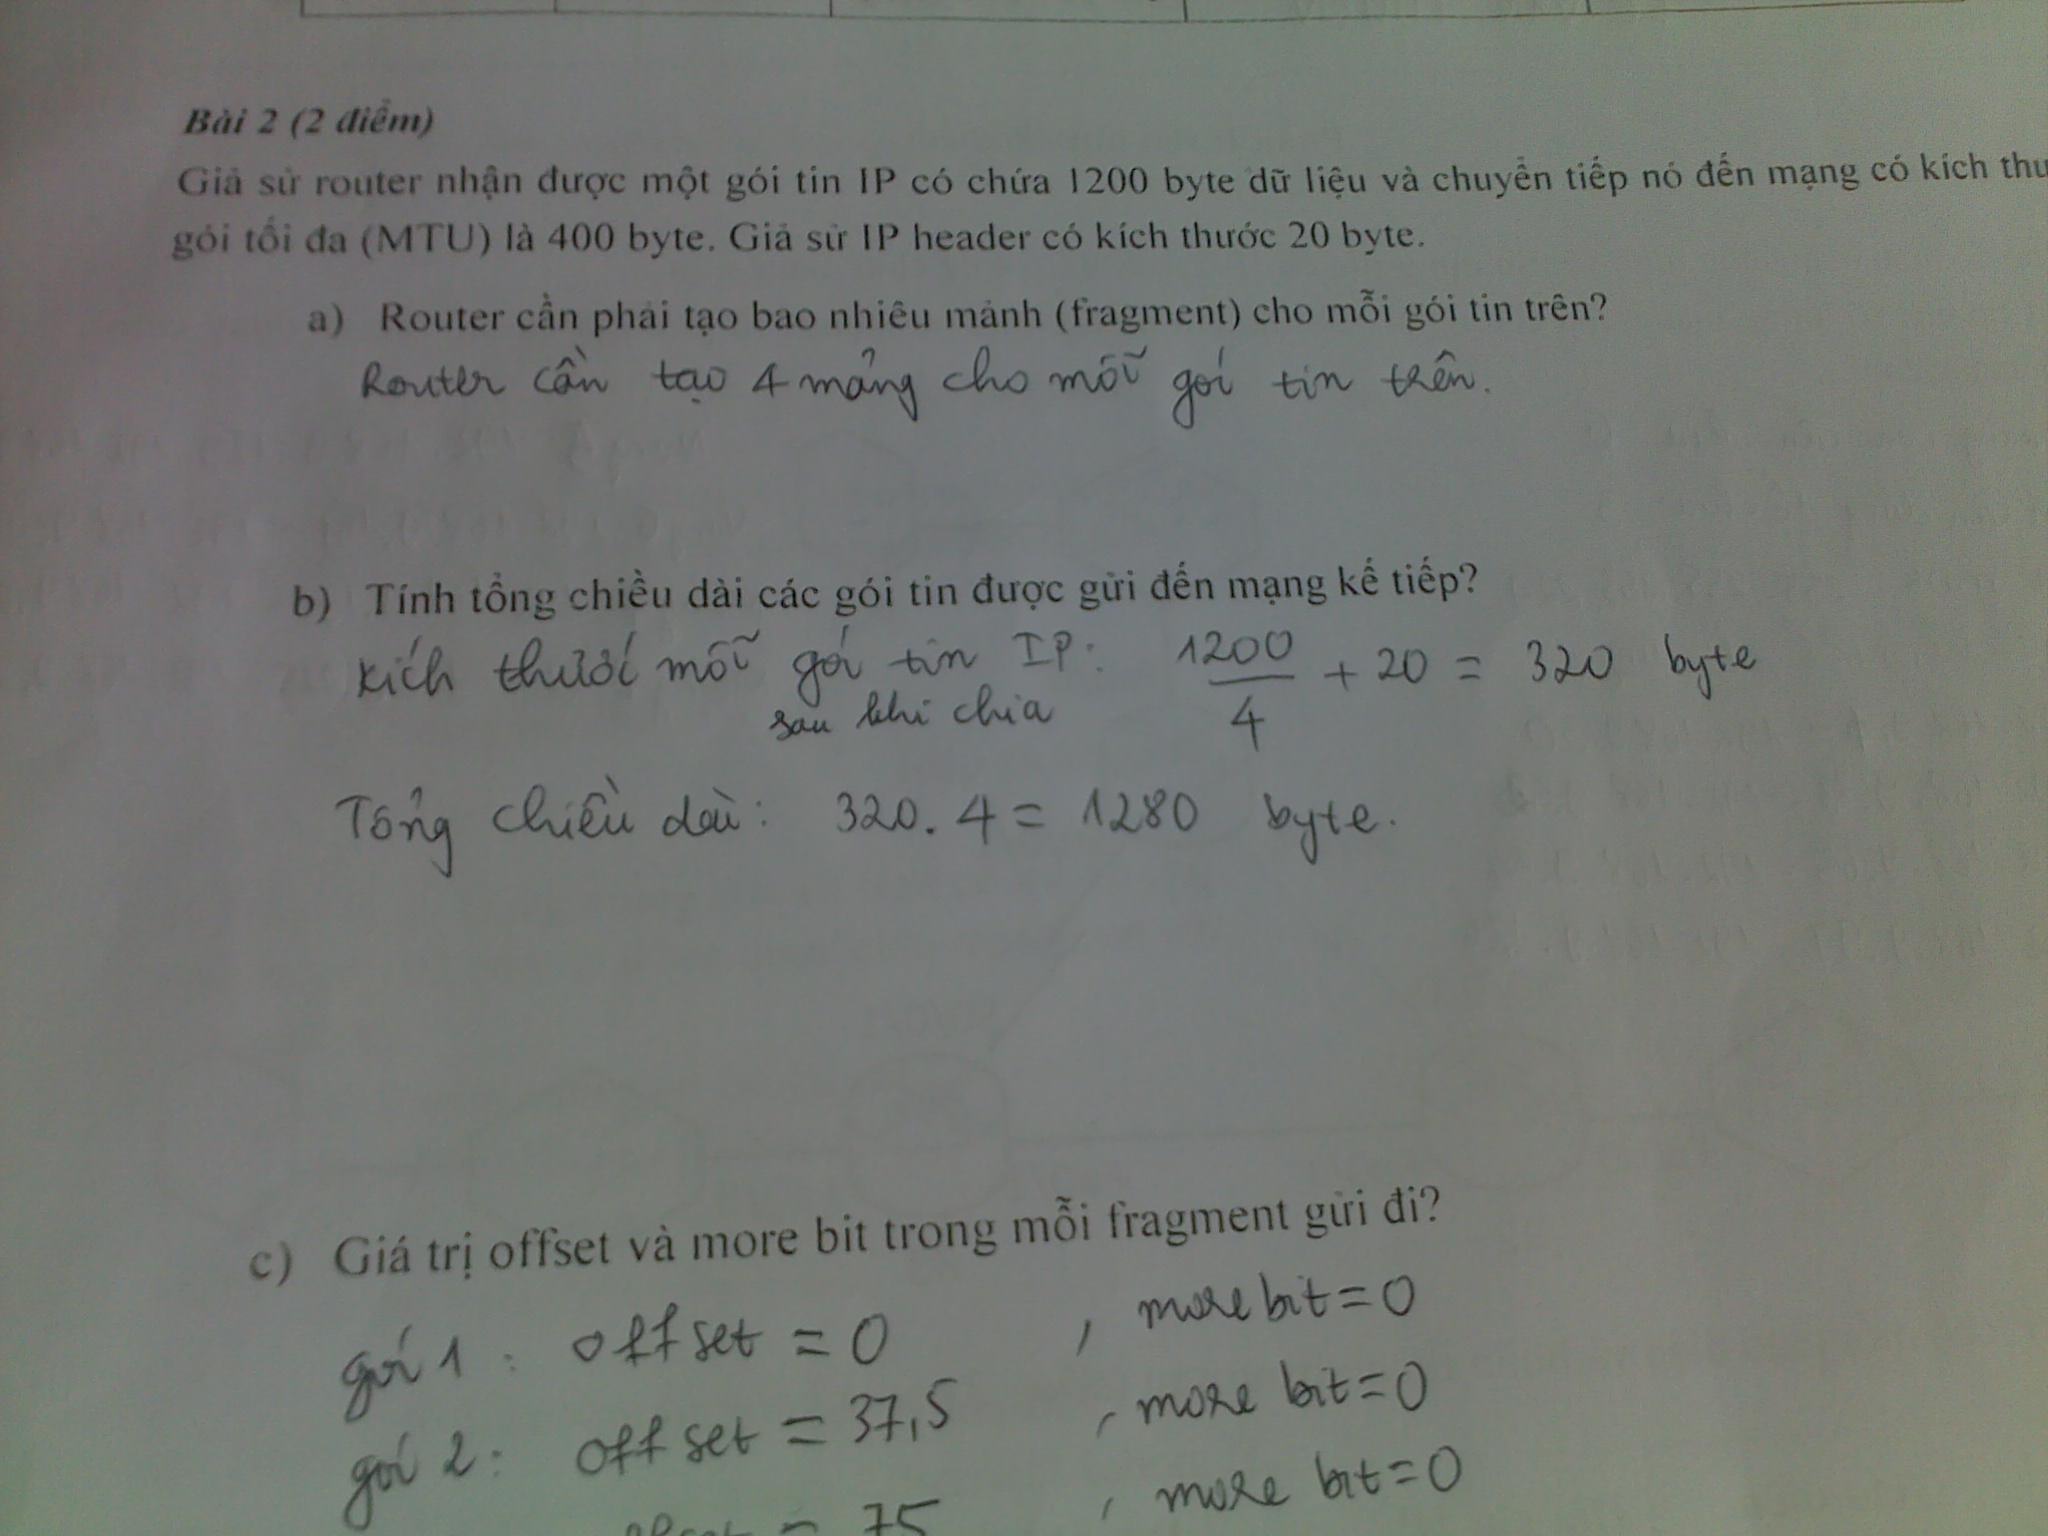 Bài 2 (2 điểm)
Giả sử router nhận được một gói tin IP có chứa 1200 byte dữ liệu và chuyển tiếp nó đến mạng có kích thư
gói tối đa (MTU) là 400 byte. Giả sử IP header có kích thước 20 byte.
a) Router cần phải tạo bao nhiêu mảnh (fragment) cho mỗi gói tin trên?
Router cần tạo 4 mảng cho mỗi gói tin trên.
b) Tính tổng chiều dài các gói tin được gửi đến mạng kế tiếp?
kích thước mỗi gói tin IP: 1200/4 + 20 = 320 byte
sau khi chia
Tổng chiều dài: 320. 4 = 1280 byte.
c) Giá trị offset và more bit trong mỗi fragment gửi đi?
gói 1: offset = 0 , more bit = 0
gói 2: offset = 37,5 , more bit = 0
offset = 75 , more bit = 0